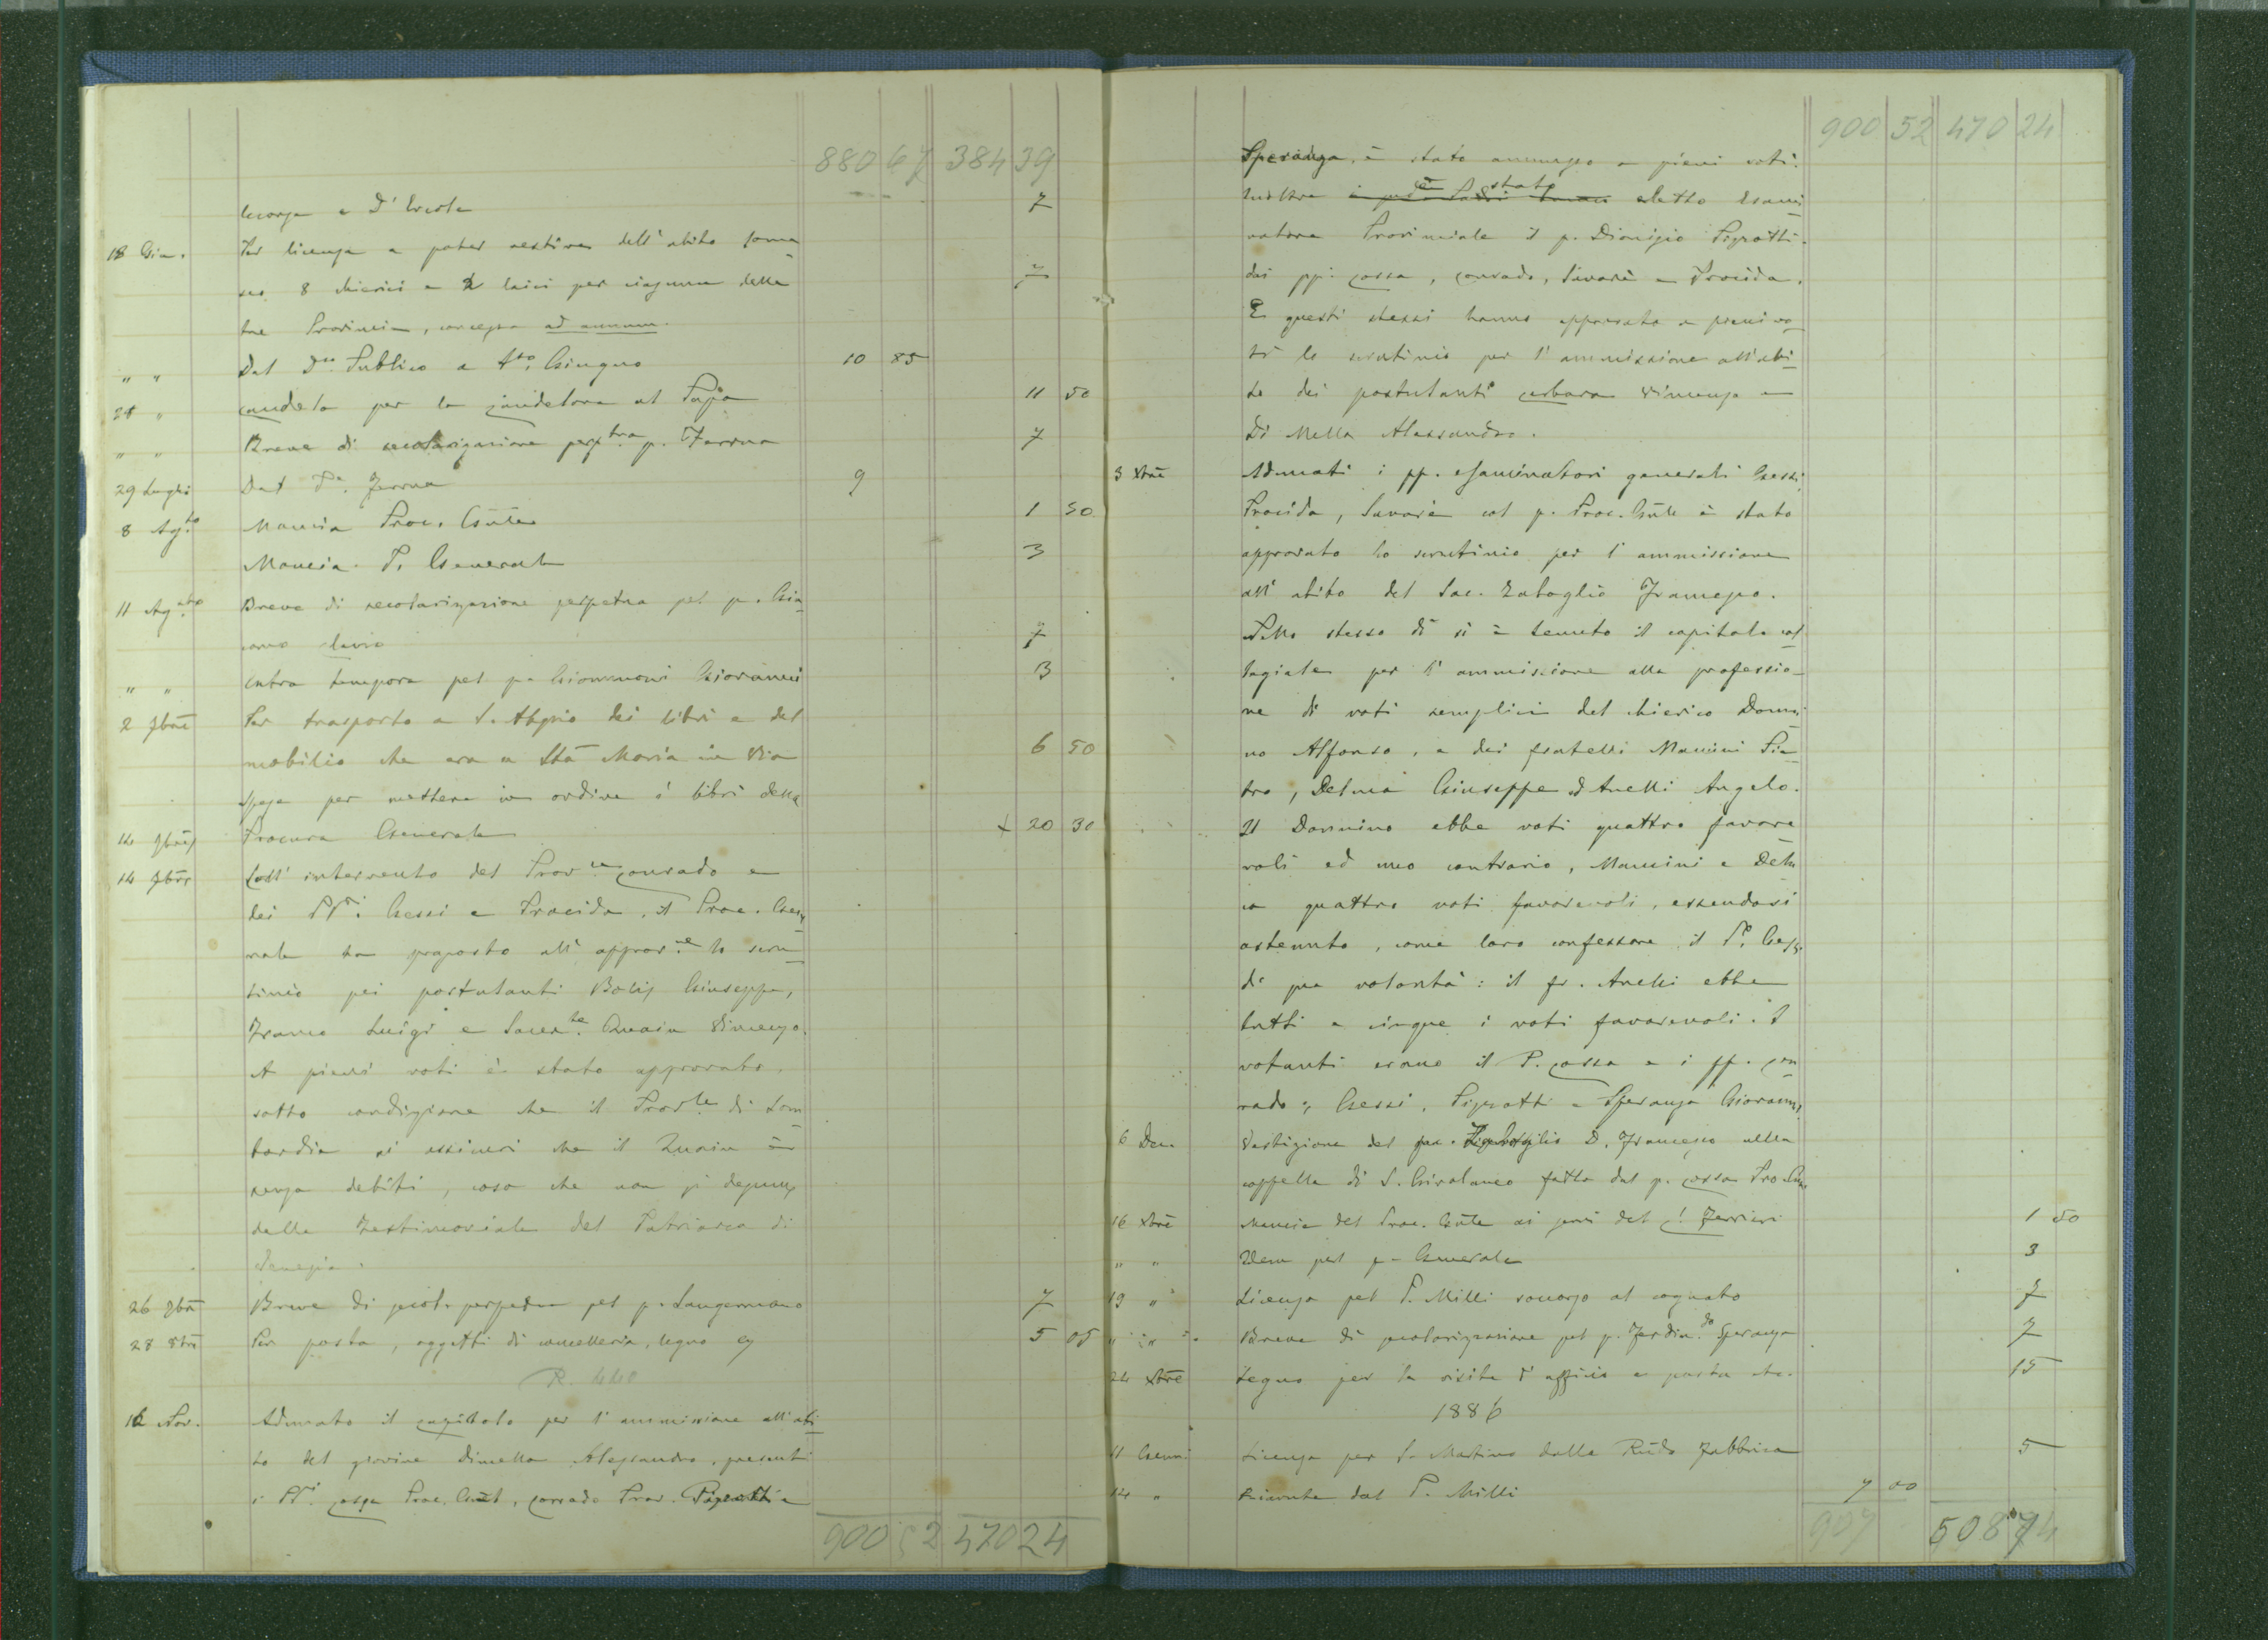 880 67 384 39
e D' Ercole 7
18 Giu. Per licenza a poter vestire dell'abito soma
sco 8 chierici e 2 laici per ciascuna delle 7
tre Provincie, concessa ad annum.
" " Dal D.co Publico a t.to Giugno 10 85
28 " candela per la candelora al Papa 11 50
" " Breve di secolarizzazione perp.tua p. Ferrua 7
29 Luglio Dal Ferrua 9
8 Ag.to Mancia Proc. Gñle 1 50
Mancia P. Generale 3
11 Ag.sto Breve di secolarizzazione perpetua pel p. Gia
como 7
" " extra tempora pel p. Giovanni 3
2 7bre Per trasporto a S. Alessio dei libri e del
mobilio che era a Sta Maria in Via 6 50
Spesa per mettere in ordine i libri della
14 7bre Procura Generale + 20 30
14 7bre Coll' intervento del Prov.le Conrado e
dei PP.i Gessi e Procida, il Proc. Gene
rale ha proposto all' approv.ne lo scru
tinio pei postulanti Bolis Giuseppe,
Franco Luigi e Sacer.te Quain Vincenzo.
A pieni voti è stato approvato,
sotto condizione che il Prov.le di Lom
bardia si assicuri che il Quain è
senza debiti, cosa che non si desume
dalla Testimoniale del Patriarca di
Venezia.
26 7bre Breve di secol. perpetua pel p. Sangermano 7
28 8bre Per posta, oggetti di cancelleria, legno 5 05
R. 440
12 Nov. Adunato il capitolo per l'ammissione all'abi
to del giovine Dimella Alessandro, presenti
i PP.i Cossa Proc. Gñl, Conrado Prov. Pizzotti e
900 52 470 24
900 52 470 24
Speranza, è stato ammesso a pieni voti.
Inoltre è stato eletto Esami
natore Provinciale il p. Dionigio Pizzotti.
dai pp. Cossa, Conrado, Savarè e Procida.
E questi stessi hanno approvato a pieni vo
ti lo scrutinio per l'ammissione all'abi
to dei postulanti Carbara Vincenzo e
Di Mella Alessandro.
3 Xbre Adunati i pp. esaminatori generali Gessi,
Procida, Savarè col p. Proc. Gñle è stato
approvato lo scrutinio per l'ammissione
all'abito del Sac. Zabaglio Francesco.
Nello stesso dì si è tenuto il capitolo col
legiale per l'ammissione alla professio
ne di voti semplici del chierico Donni
no Alfonso, e dei fratelli Mancini Pie
tro, Delmà Giuseppe ed Anelli Angelo.
Il Donnino ebbe voti quattro favore
voli ed uno contrario, Mancini e Del
quattro voti favorevoli, essendosi
astenuto, come loro confessore, il P. Gessi
di sua volontà: il fr. Anelli ebbe
tutti e cinque i voti favorevoli. I
votanti erano il P. Cossa e i pp. Con
rado, Gessi, Pizzotti e Speranza Giovanni.
6 Dec. Vestizione del D. Francesco nella
cappella di S. Girolamo fatta dal p. Cossa Pro.
16 Xbre Mancia del Proc. Gñle ai servi del C. Ferrieri 1 50
" " Idem pel p. Generale 3
19 " Licenza pel P. Milli soccorso al cognato 7
" " Breve di secolarizzazione pel p. Ferdin.do Speranza 7
24 Xbre Legno per la visita d'uffizio e posta etc. 15
1886
11 Genn. Licenza per S. Martino dalla Rũda Fabbrica 5
14 " Ricevute dal P. Milli 7 00
907 508 74